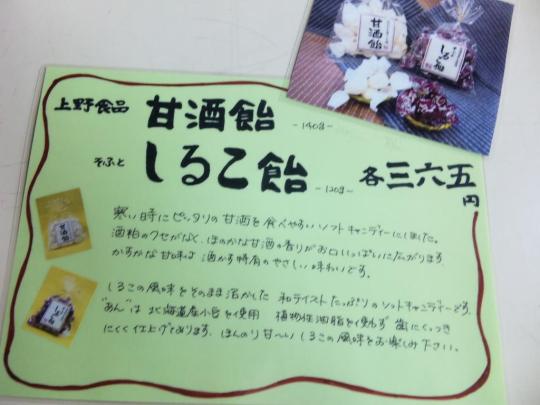 甘酒飴
しるこ飴
上野食品 甘酒飴 -140g-
そふと しるこ飴 -120g- 各三六五円
寒い時にピッタリの甘酒を食べやすいソフトキャンディーにしました。
酒粕のクセがなく、ほのかな甘酒の香りがお口いっぱいに広がります。
かすかな甘味は酒かす特有のやさしい味わいです。
しるこの風味をそのまま活かした 和テイストたっぷりのソフトキャンディーです。
"あん"は北海道産小豆を使用 植物性油脂を使わず 歯にくっつき
にくく仕上げてあります。ほんのり甘〜いしるこの風味をお楽しみ下さい。
甘酒飴
しるこ飴